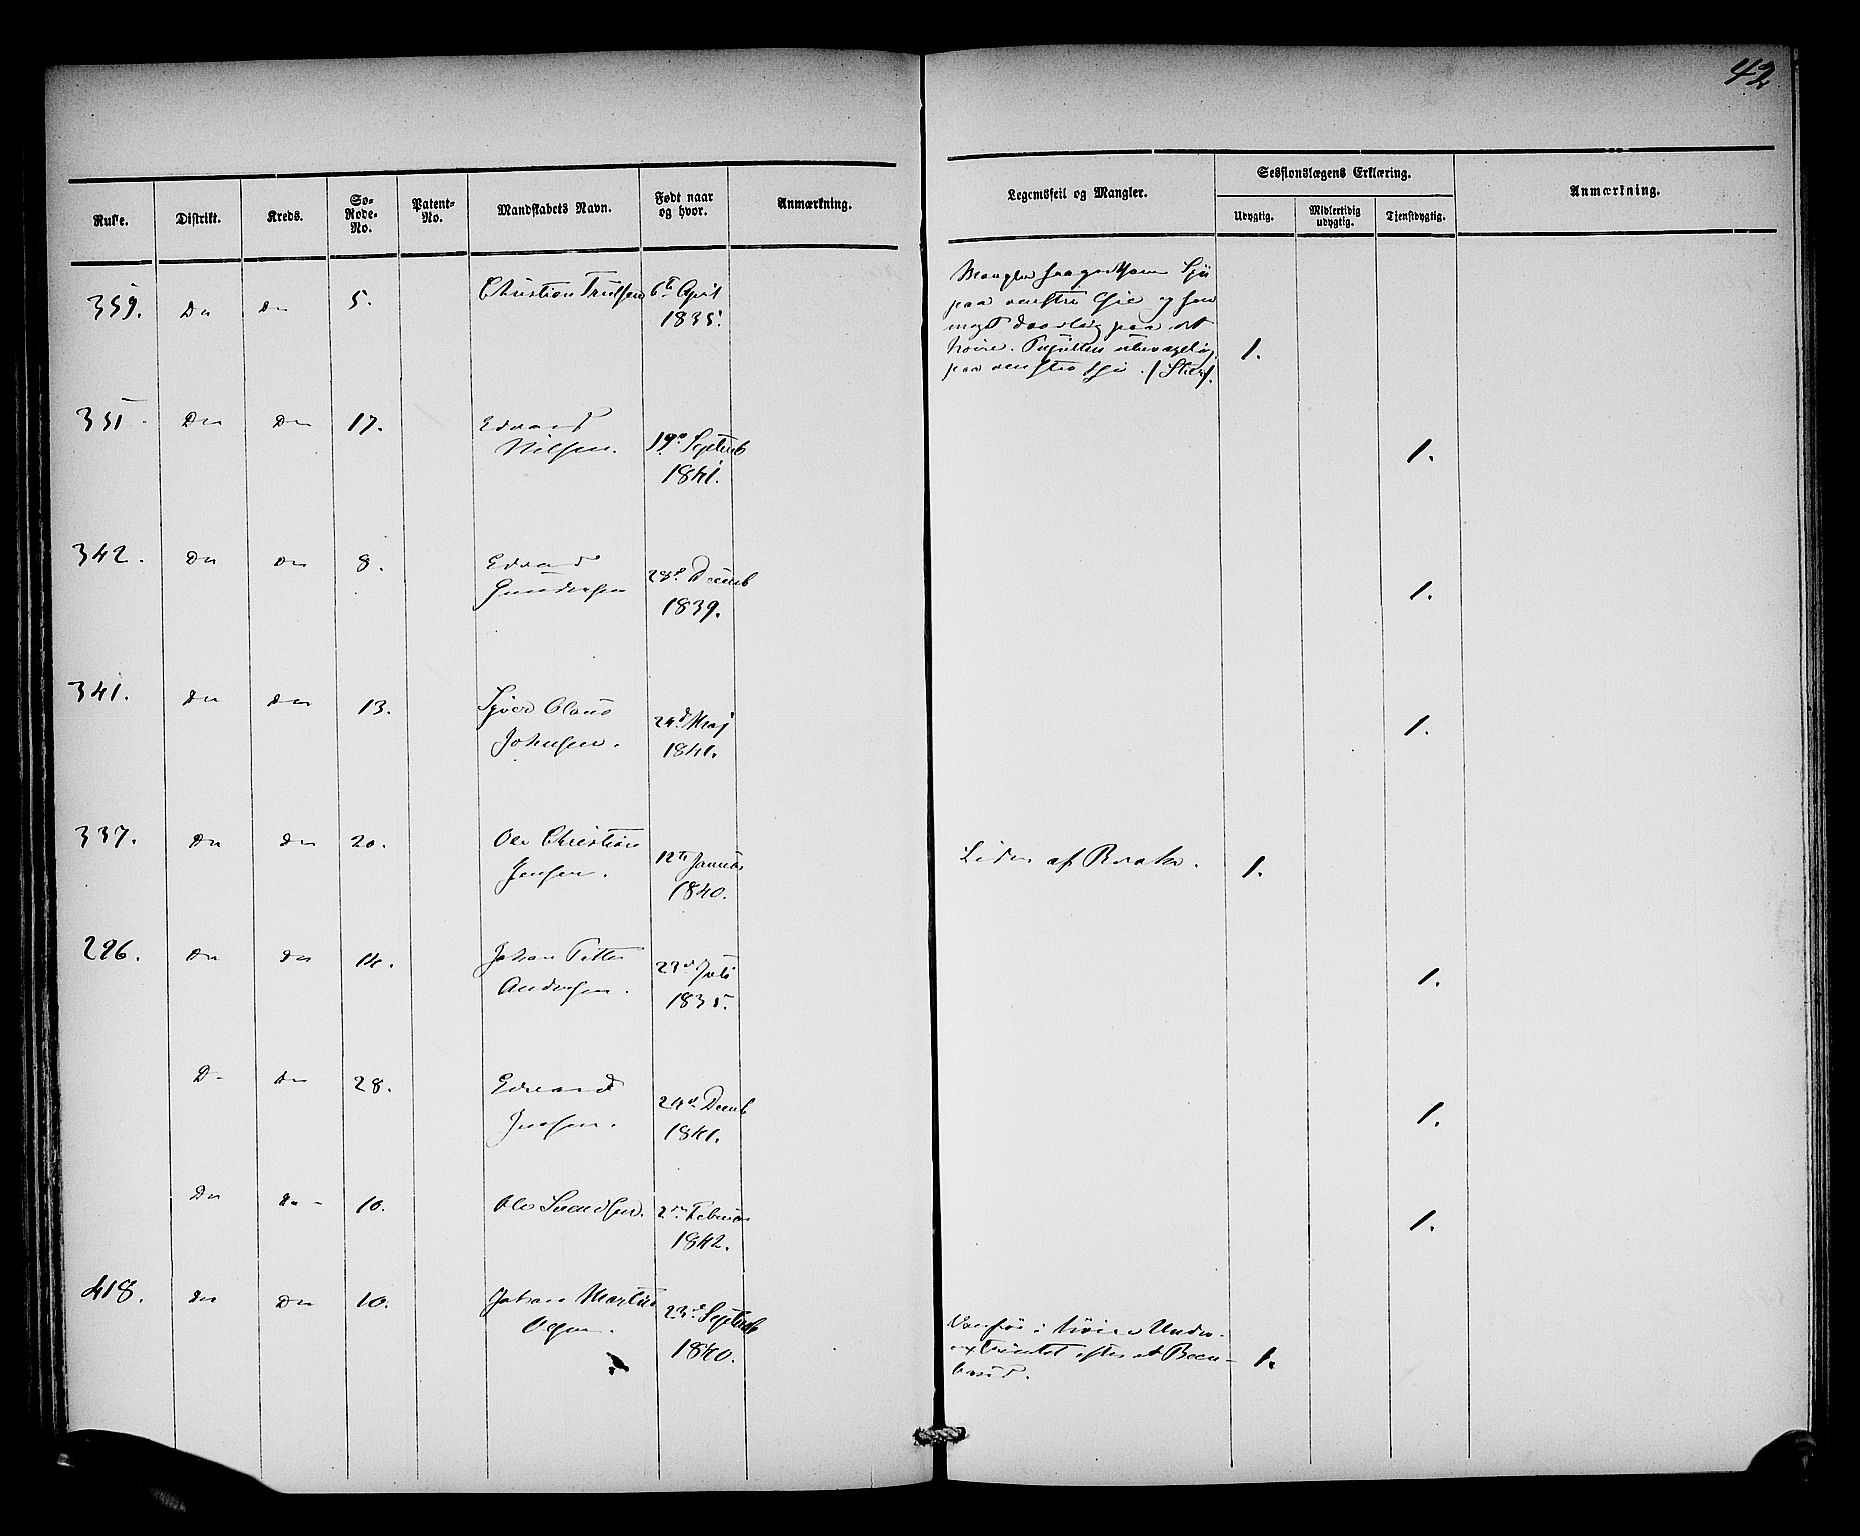 42
Rulle. Distrikt. Kreds. Sø-Rode-No. Patent-No. Mandskabets Navn. Født naar og hvor. Anmærkning. Legemsfeil og Mangler. Sessionslægens Erklæring. Udygtig. Midlertidig udygtig. Tjenstdygtig. Anmærkning.
359. Do Do 5. Christian Trulsen 6te April
1835.
paa venstre Øie og ser
meget daarlig paa det
høire. Pupillen ubevægelig 1.
paa venstre Øie.
351. Do Do 17. Edvard
Nilsen. 19de Septemb
1841. 1.
342. Do Do 8. Edvard
Gundersen 28de Decemb
1839. 1.
341. Do Do 13. Sjver Olaus
Johnsen. 24de Maj
1841. 1.
337. Do Do 20. Ole Christian
Jensen. 12te Januar
1840. Lider af Brok. 1.
296. Do Do 14. Johan Petter
Andersen. 23de Juli
1835. 1.
Do Do 28. Edvard
Jensen. 24de Decemb
1841. 1.
Do Do 10. Ole Svendsen. 2den Februar
1842. 1.
418. Do Do 10. Johan Martin
Olsen. 23de Septemb
1840. Vanfør i høire Under-
extremitet efter et Been- 1.
brud.